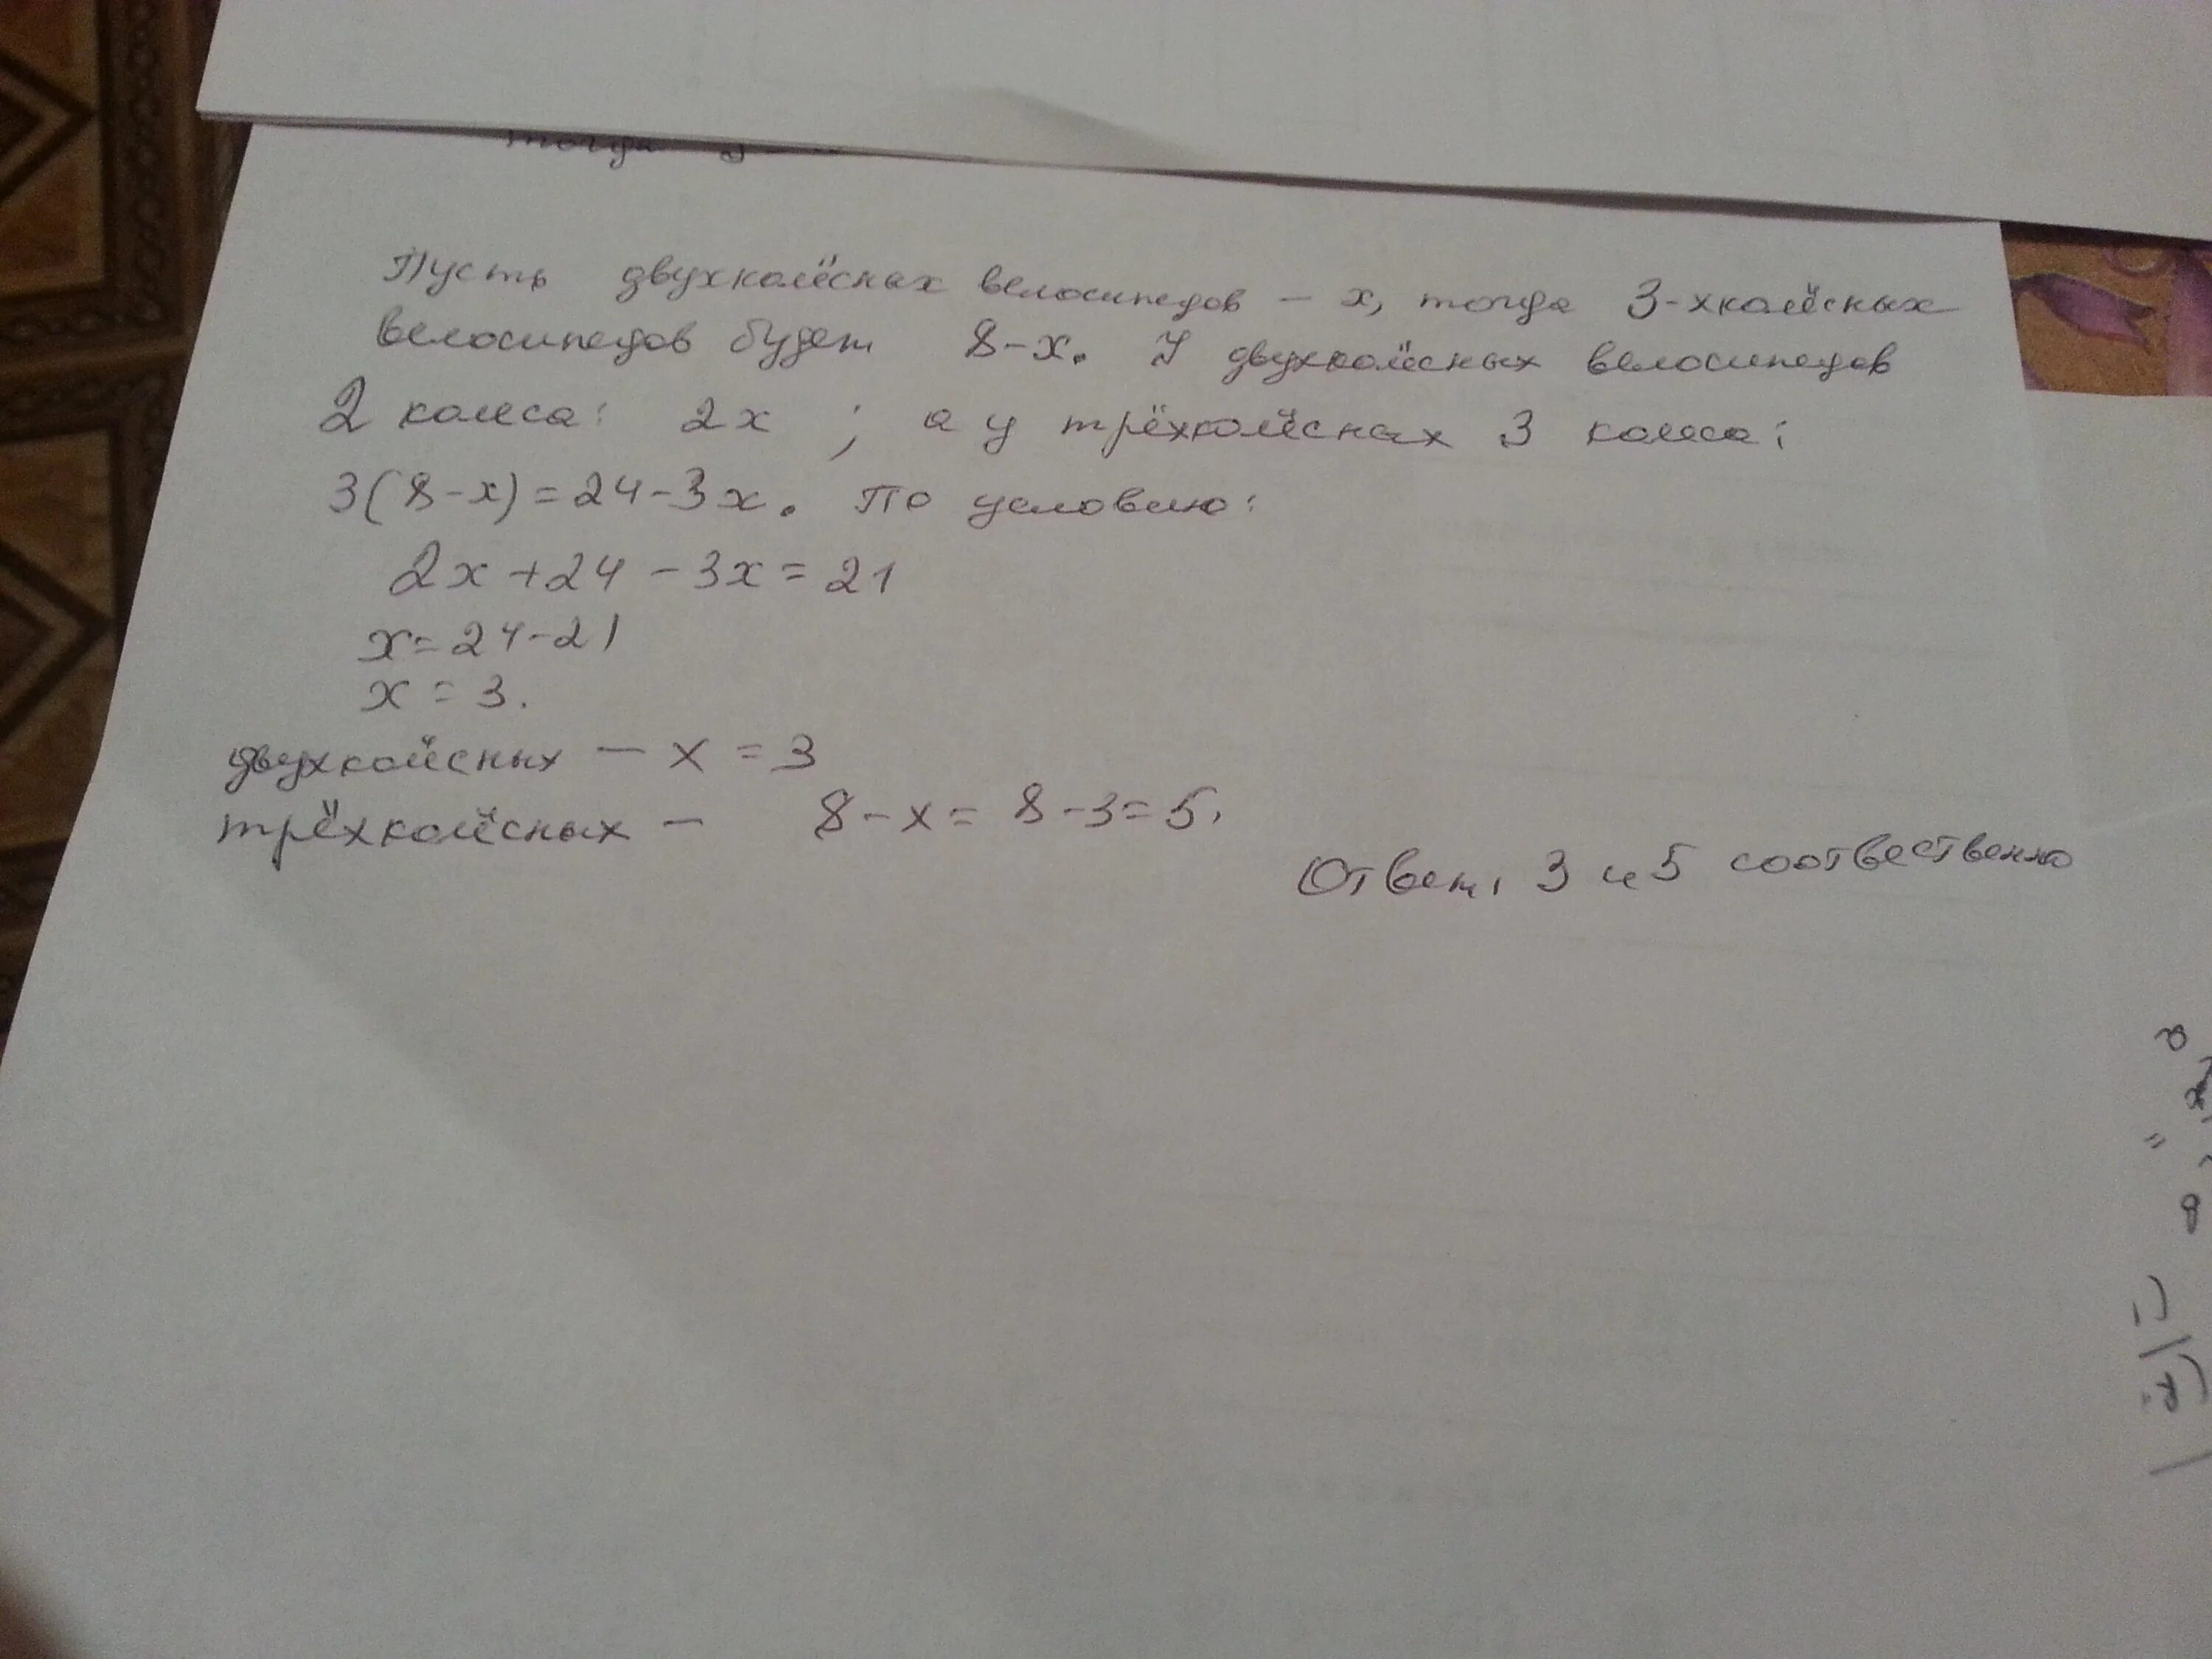 тогда
Пусть двухколёсных велосипедов – x, тогда 3-хколёсных
велосипедов будет 8-x. У двухколёсных велосипедов
2 колеса: 2x ; а у трёхколёсных 3 колеса:
3(8-x)=24-3x. По условию:
2x+24-3x=21
x=24-21
x=3.
двухколёсных – x=3
трёхколёсных – 8-x=8-3=5.
Ответ: 3 и 5 соотвественно